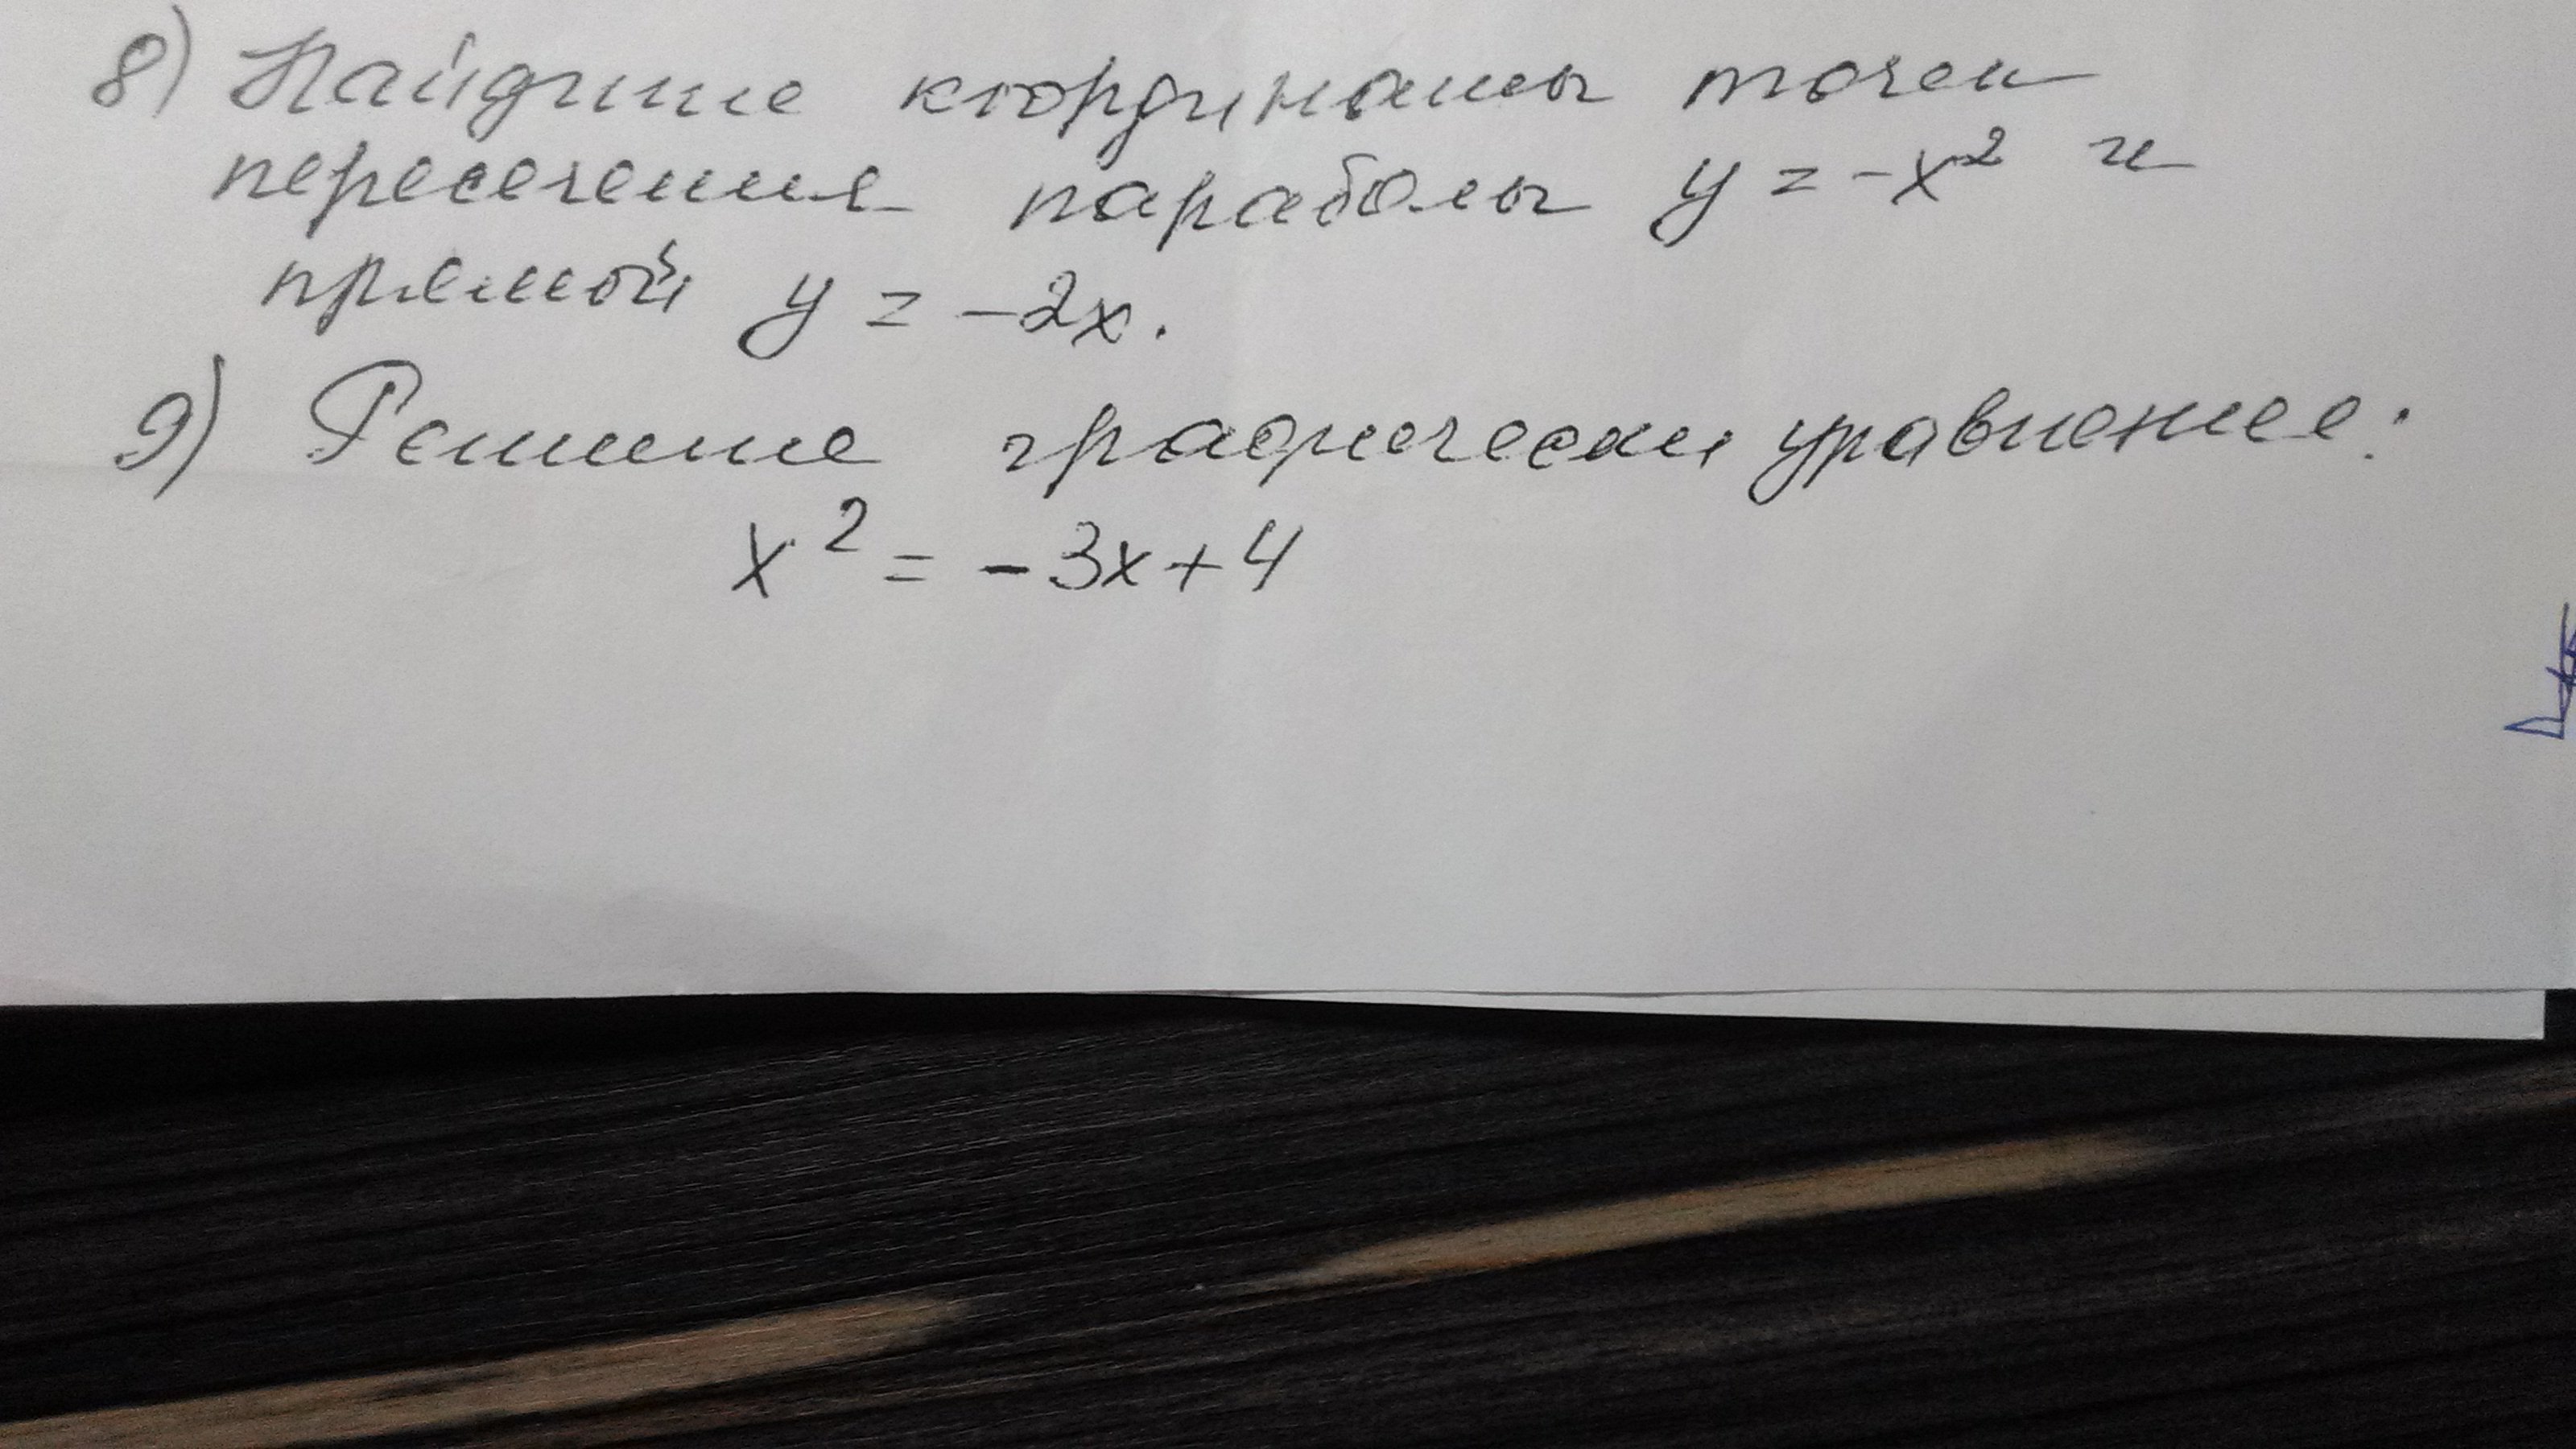 8) Найдите координаты точек
пересечения параболы y = -x² и
прямой y = -2x.
9) Решите графически уравнение:
x² = -3x+4